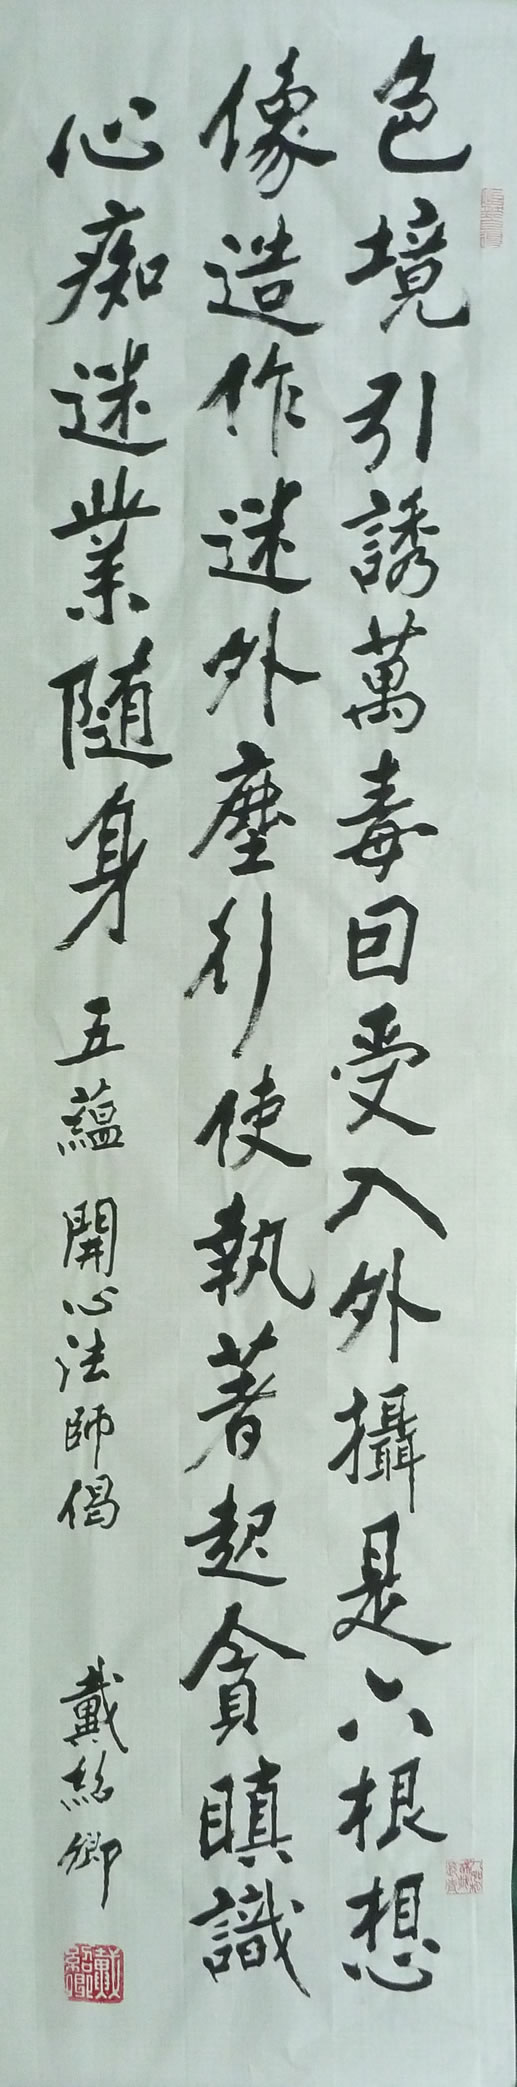 色境引誘萬毒回受入外攝是六根想
像造作迷外塵行使執著起貪瞋識
心痴迷業隨身 五蘊 開心法師偈 戴紹卿
戴紹卿